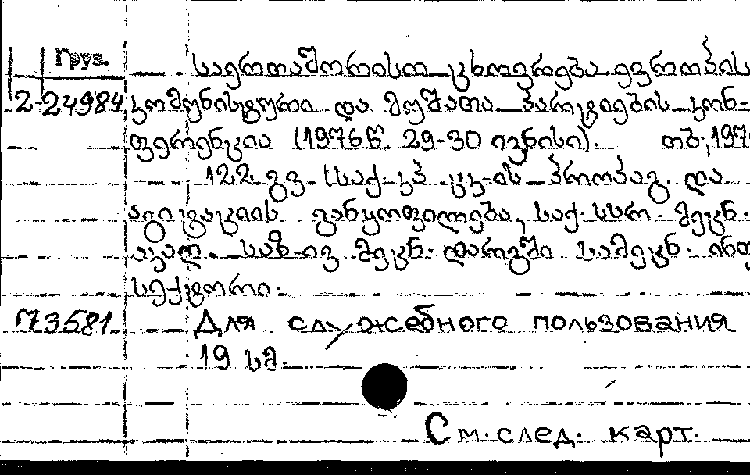 Груз.
საერთაშორისო ცხოვრება ევროპის
2-24984 კომუნისტური და მუშათა პარტიების კონ-
ფერენცია (1976წ. 29-30 ივნისი). თბ., 197
122 გვ. (საქ. კპ ცკ-ის პროპაგ. და
აგიტაციის განყოფილება, საქ. სსრ მეცნ.
აკად. საზ-ივ მეცნ. დარგში სამეცნ. ინფ
სექტორი.
П3581 Для служебного пользования
19 სმ.
См. след. карт.